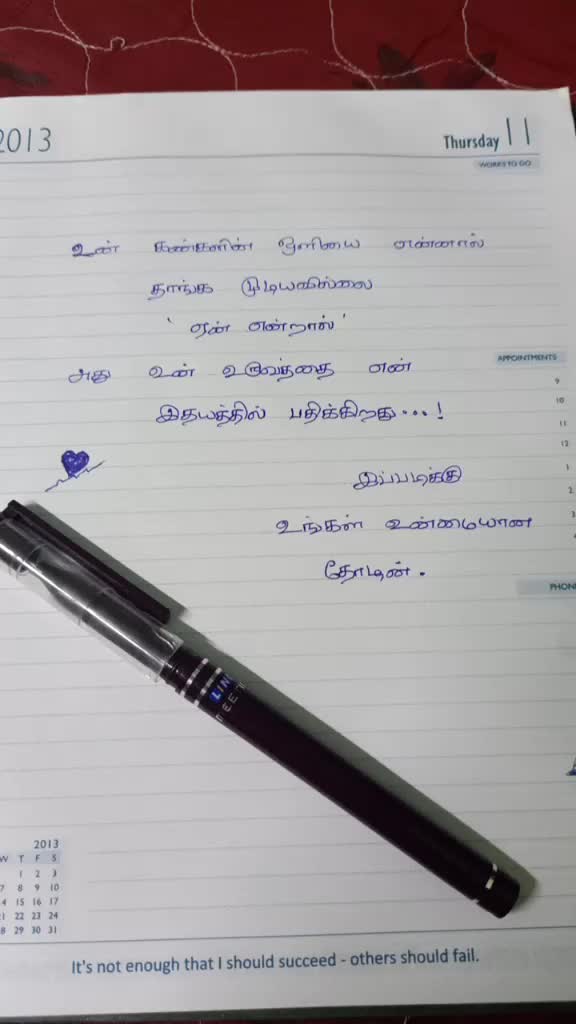 2013
Thursday 11
WORKS TO GO
உன் கண்களின் ஒளியை என்னால்
தாங்க முடியவில்லை
' ஏன் என்றால் '
அது உன் உருவத்தை என்
இதயத்தில் பதிக்கிறது...!
இப்படிக்கு
உங்கள் உண்மையான
தோழன்.
APPOINTMENTS
9
10
11
12
1
2
3
LINC
2013
W T F S
1 2 3
7 8 9 10
14 15 16 17
21 22 23 24
28 29 30 31
It's not enough that I should succeed - others should fail.